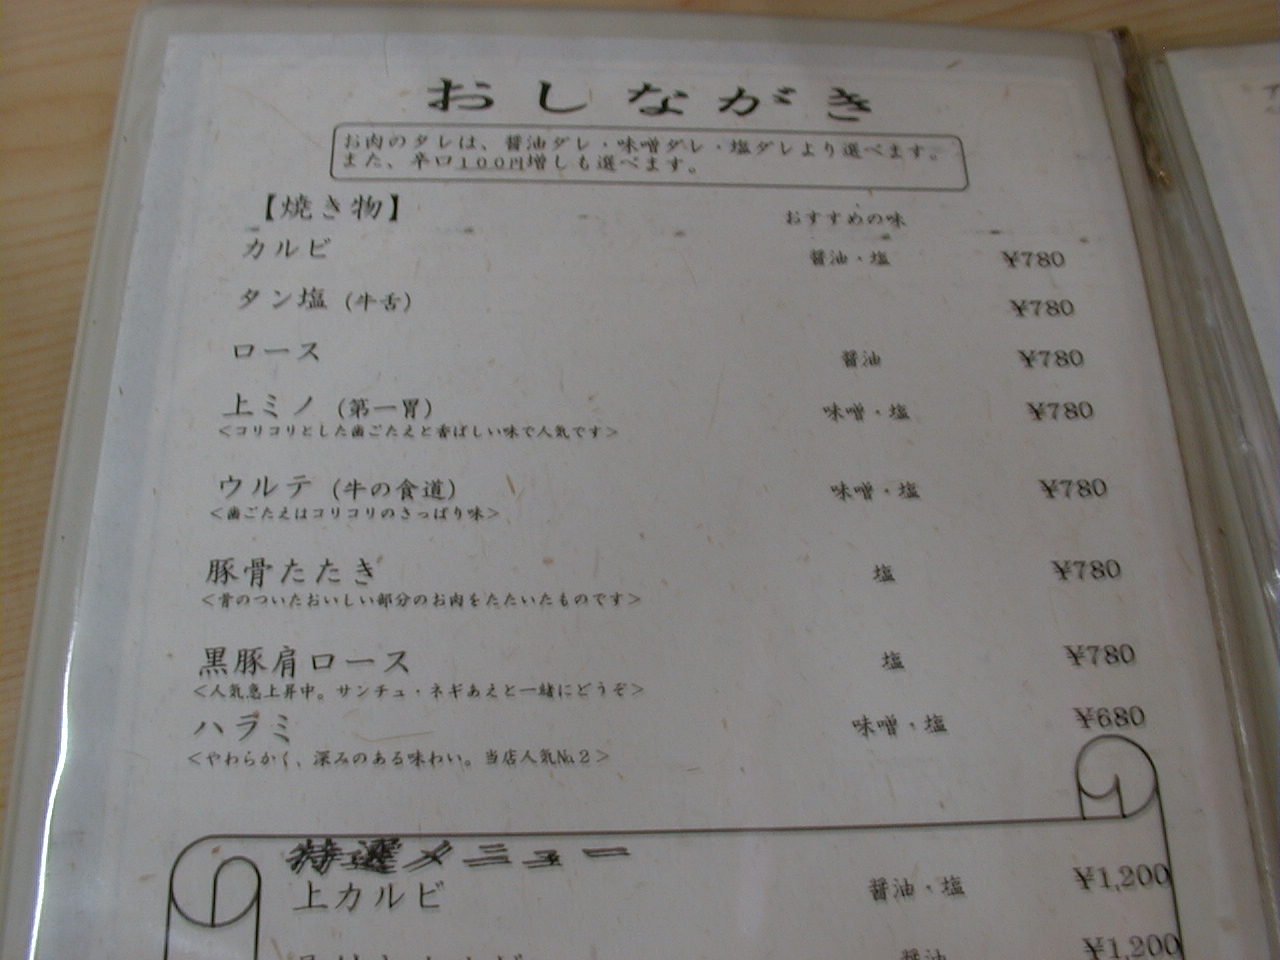 おしながき
お肉のタレは、醤油ダレ・味噌ダレ・塩ダレより選べます。
また、辛口100円増しも選べます。
【焼き物】 おすすめの味
カルビ 醤油・塩 ¥780
タン塩 (牛舌) ¥780
ロース 醤油 ¥780
上ミノ (第一胃) 味噌・塩 ¥780
<コリコリとした歯ごたえと香ばしい味で人気です>
ウルテ (牛の食道) 味噌・塩 ¥780
<歯ごたえはコリコリのさっぱり味>
豚骨たたき 塩 ¥780
<骨のついたおいしい部分のお肉をたたいたものです>
黒豚肩ロース 塩 ¥780
<人気急上昇中。サンチュ・ネギあえと一緒にどうぞ>
ハラミ 味噌・塩 ¥680
<やわらかく、深みのある味わい。当店人気No.2>
特選メニュー
上カルビ 醤油・塩 ¥1,200
醤油 ¥1,200